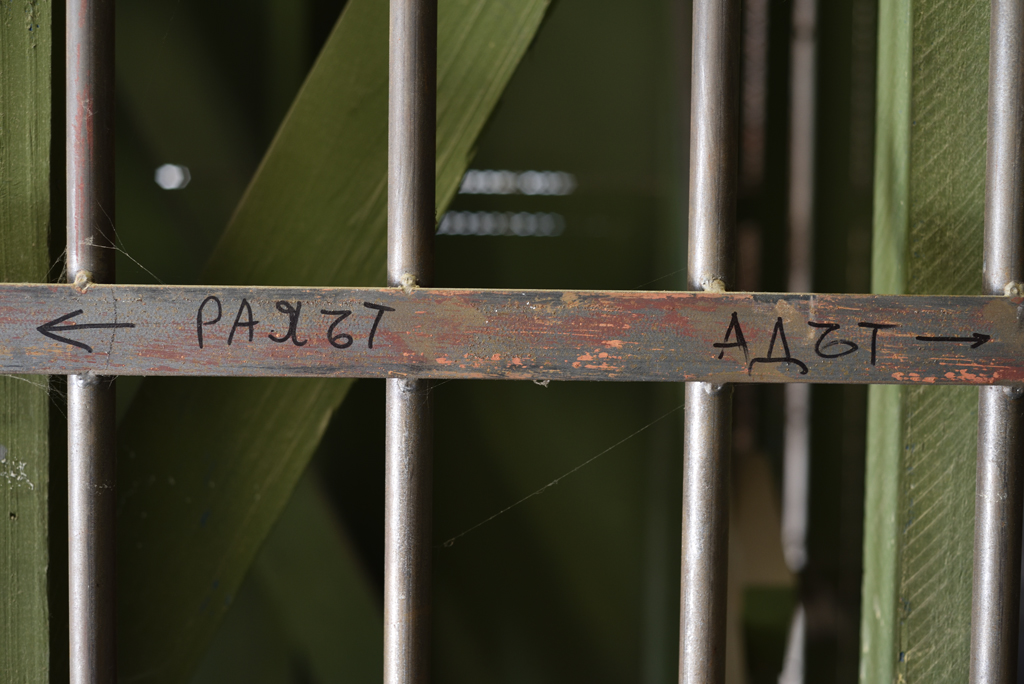 ← РАЯЪТ АДЪТ →